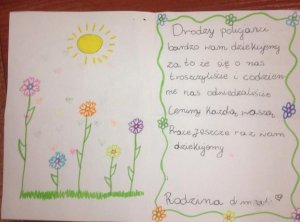 Drodzy policjanci
bardzo wam dziękujemy
za to że się o nas
troszczyliście i codzien
nie nas odwiedzaliście
Cenimy każdą waszą
Pracę jeszcze raz wam
dziękujemy
Rodzina